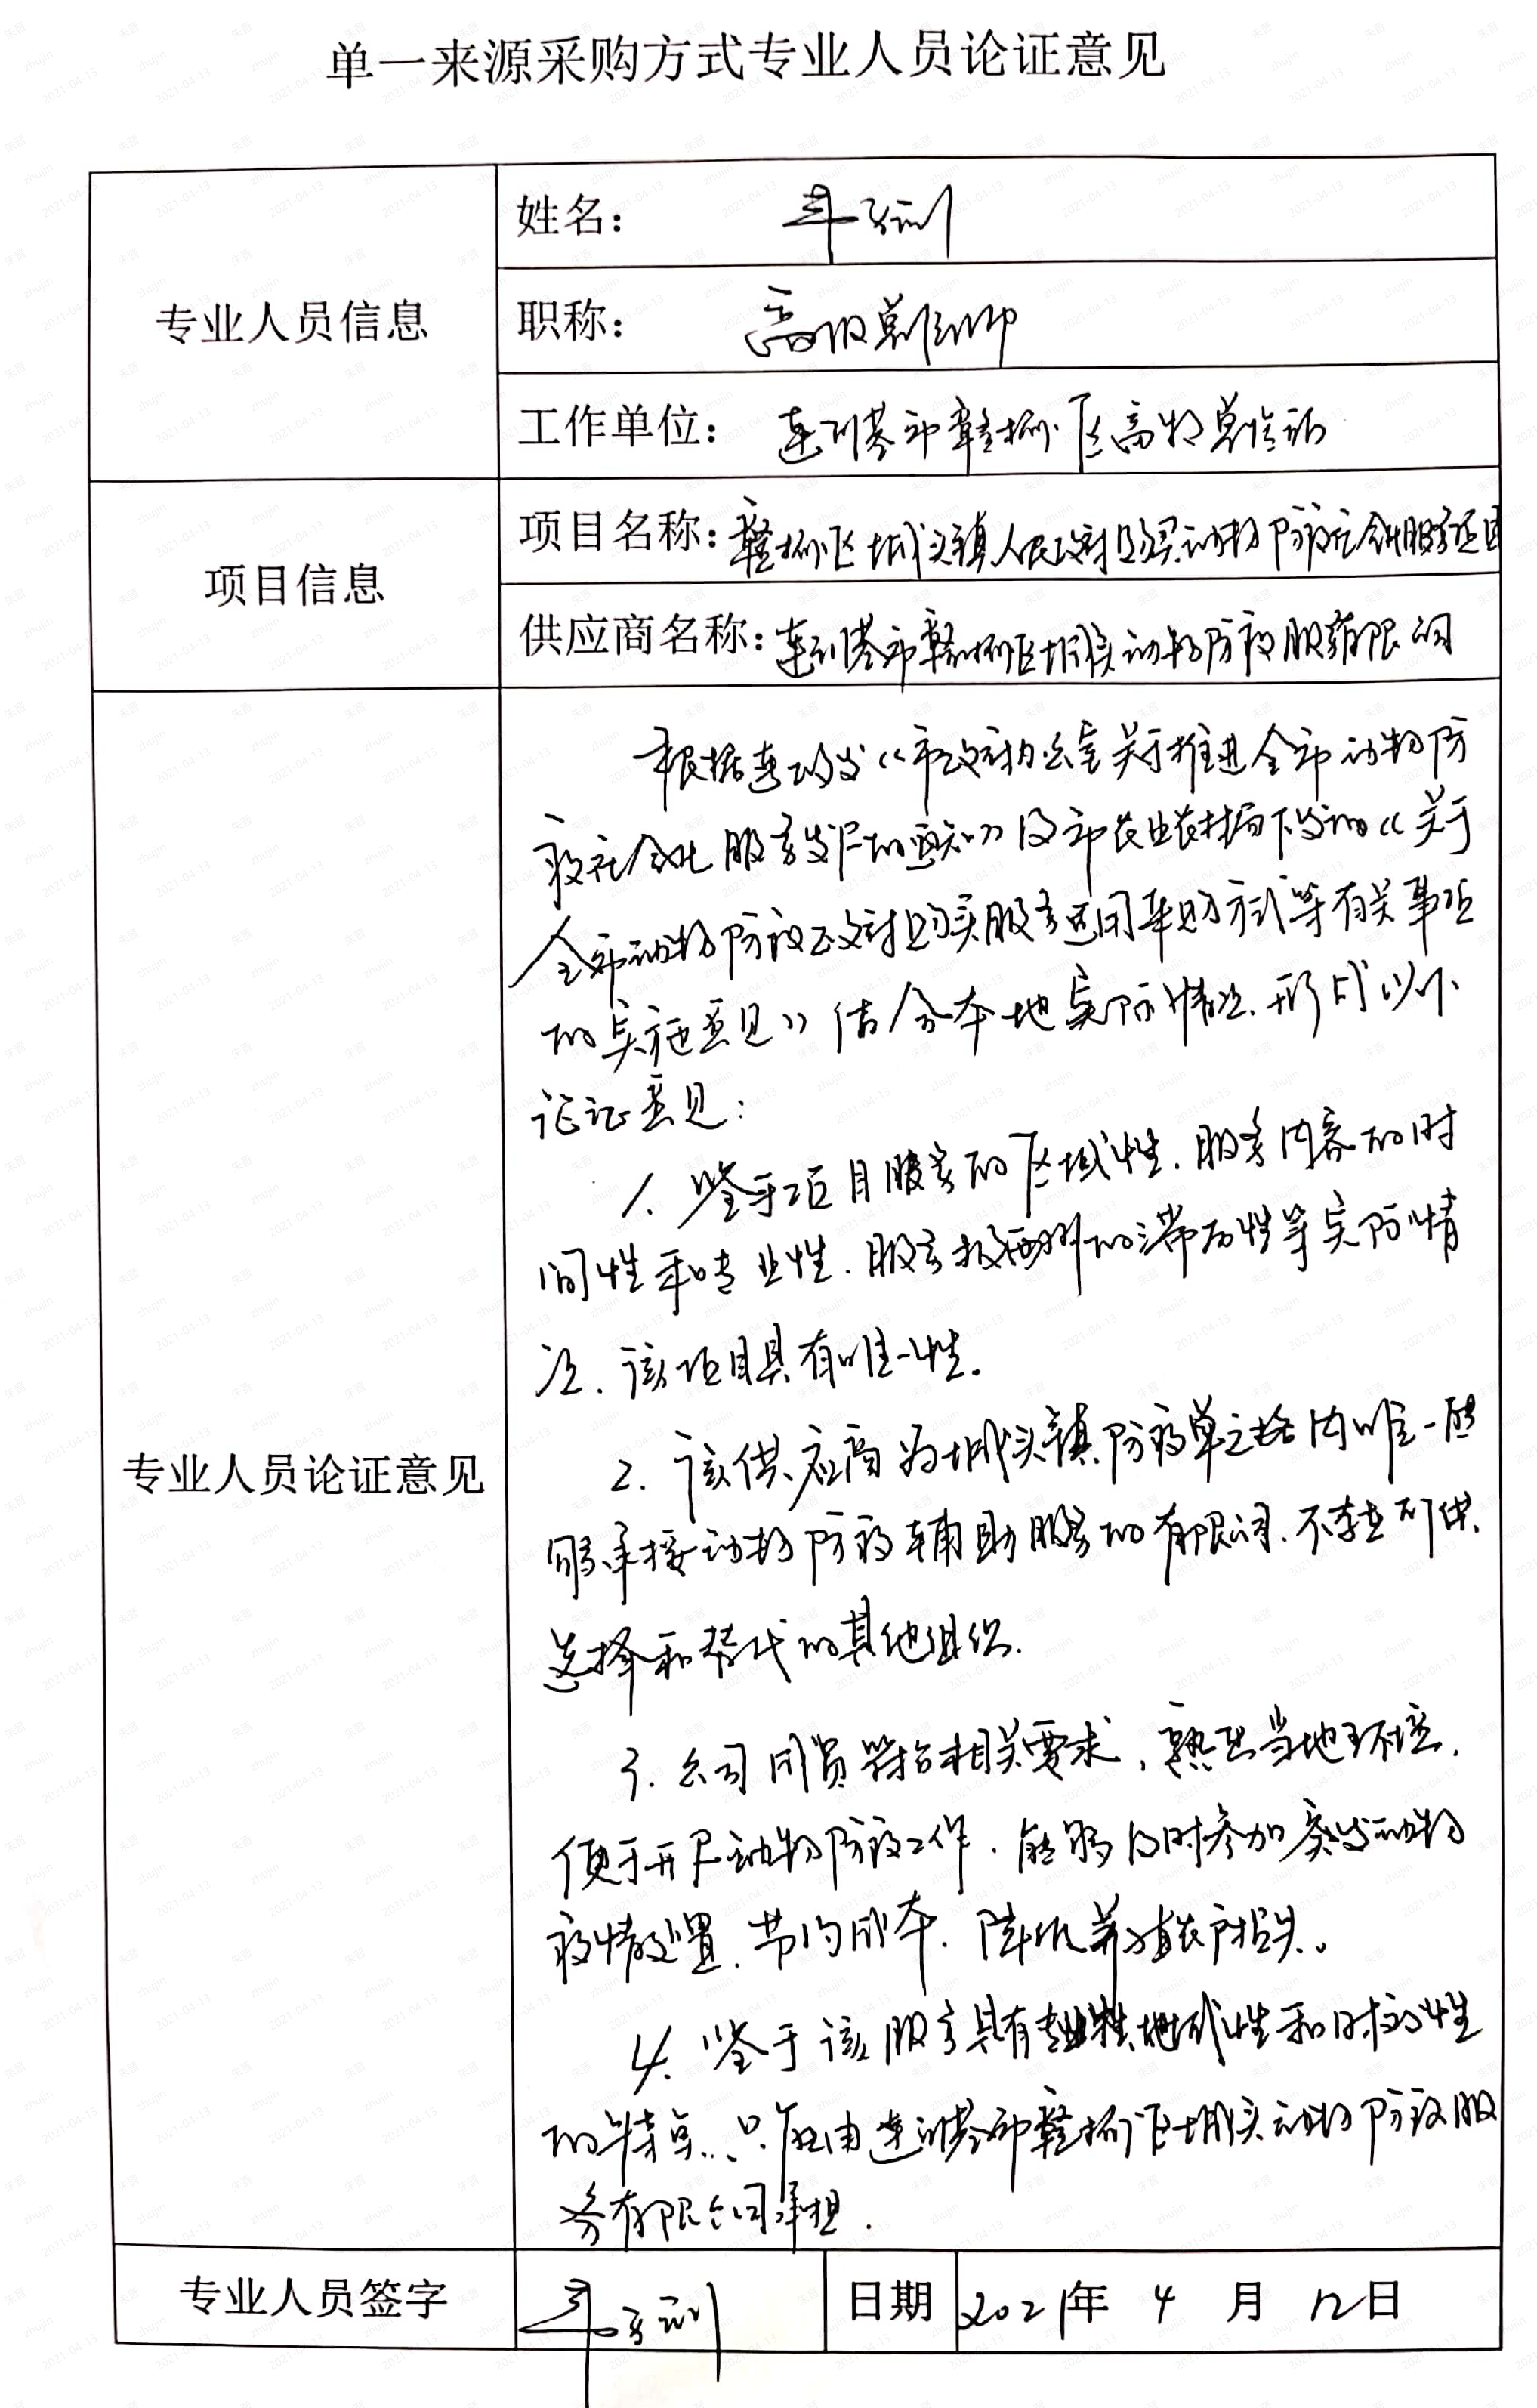 单一来源采购方式专业人员论证意见
专业人员信息
姓名：
职称： 高级兽医师
工作单位： 连云港市赣榆区畜牧兽医站
项目信息
项目名称：赣榆区城头镇人民政府购买动物防疫社会化服务项目
供应商名称：连云港市赣榆区城头动物防疫服务有限公司
专业人员论证意见
根据连政发《市政府办公室关于推进全市动物防
疫社会化服务发展的通知》及市农业农村局下发的《关于
全市动物防疫政府购买服务适用采购方式等有关事项
的实施意见》结合本地实际情况，形成以下
论证意见：
1. 鉴于项目服务的区域性，服务内容的时
间性和专业性，服务报酬的滞后性等实际情
况，该项目具有唯一性。
2. 该供应商为城头镇防疫单元格内唯一能
够承接动物防疫辅助服务的有限公司，不存在可供
选择和替代的其他组织.
3. 公司团员符合相关要求，熟悉当地环境，
便于开展动物防疫工作，能够及时参加突发动物
疫情处置，节约成本，降低养殖农户损失。
4. 鉴于该服务具有专业性，地域性和时效性
的特点，只能由连云港市赣榆区城头动物防疫服
务有限公司承担.
专业人员签字
日期 2021年 4 月 12日
朱晋
zhujin
2021-04-13